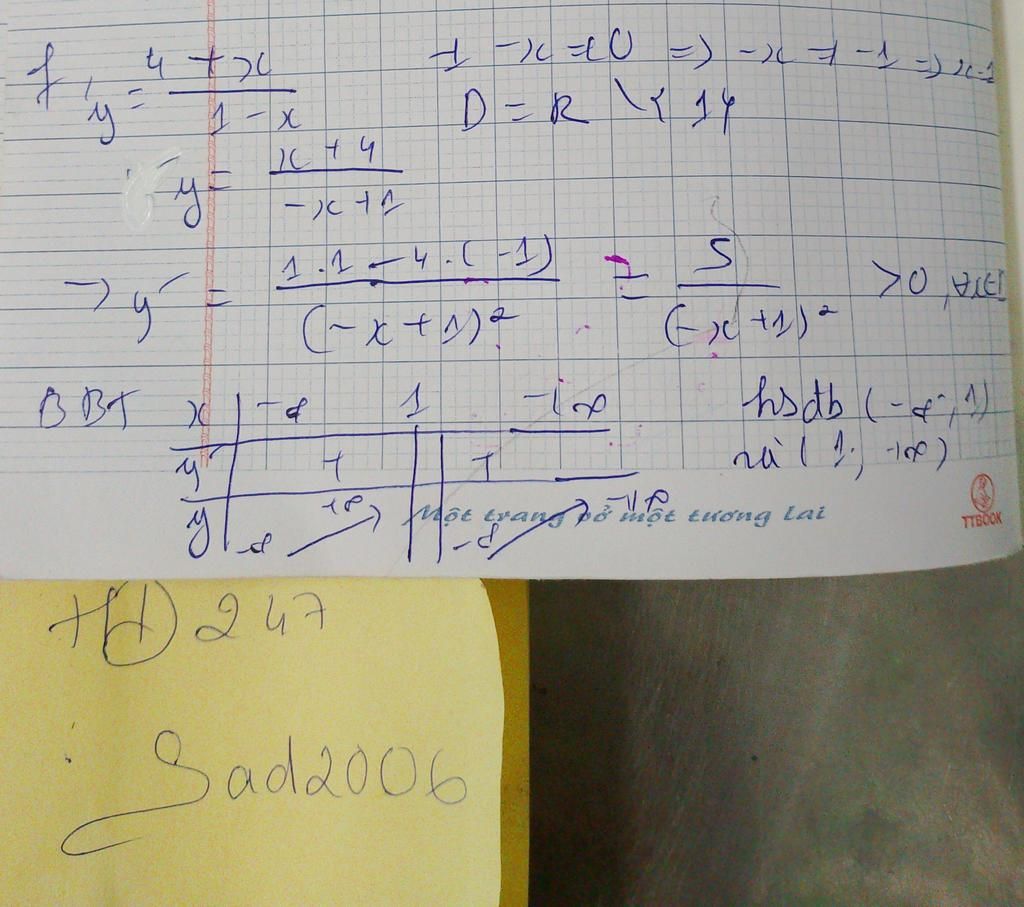 f, y = \frac{4 + x}{1 - x} 1 - x ≠ 0 => -x ≠ -1 =>
D = R \ {1}
y = \frac{x + 4}{-x + 1}
-> y' = \frac{1.1 - 4.(-1)}{(-x + 1)^2} = \frac{5}{(-x + 1)^2} > 0,
BBT x | -∞ 1 +∞ hsđb (-∞; 1)
y' | + || + và (1; +∞)
y | -∞ ↗ +∞ || -∞ ↗ +∞
Một trang vở một tương lai
TTBOOK
247
Sad2006